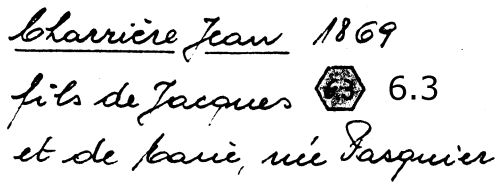 Charrière Jean 1869
fils de Jacques 63 6.3
et de Marie, née Pasquier